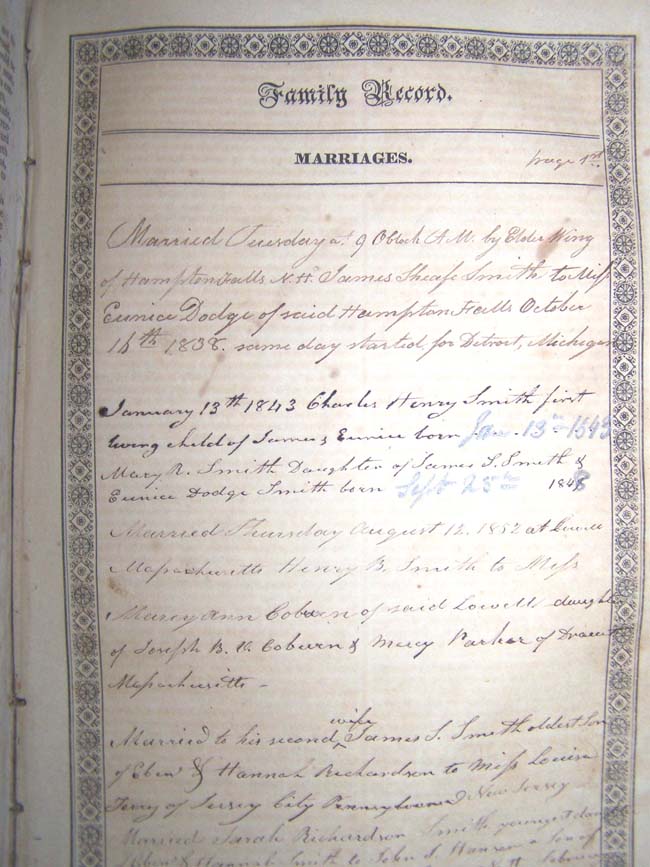 Family Record.
MARRIAGES.
page 1st
Married Tuesday at 9 Oclock A.M. by Elder Wing
of Hampton Falls N.H. James Sheafe Smith to Miss
Eunice Dodge of said Hampton Falls October
16th 1838. same day started for Detroit, Michigan
January 13th 1843 Charles Henry Smith first
living child of James & Eunice born Jan. 13th 1843
Mary R. Smith Daughter of James S. Smith &
Eunice Dodge Smith born Sept 25th 1848
Married Thursday August 12. 1852 at Lowell
Massachusetts Henry B. Smith to Miss
Mary Ann Coburn of said Lowell daughter
of Joseph B. V. Coburn & Mercy Parker of Dracut
Massachusetts –
Married to his second wife James S. Smith oldest Son
of Eben & Hannah Richardson to Miss Louisa
Terry of Jersey City Pennsylvania New Jersey
Married Sarah Richardson Smith youngest daughter
Eben & Hannah Smith to John S. Hanson a Son of